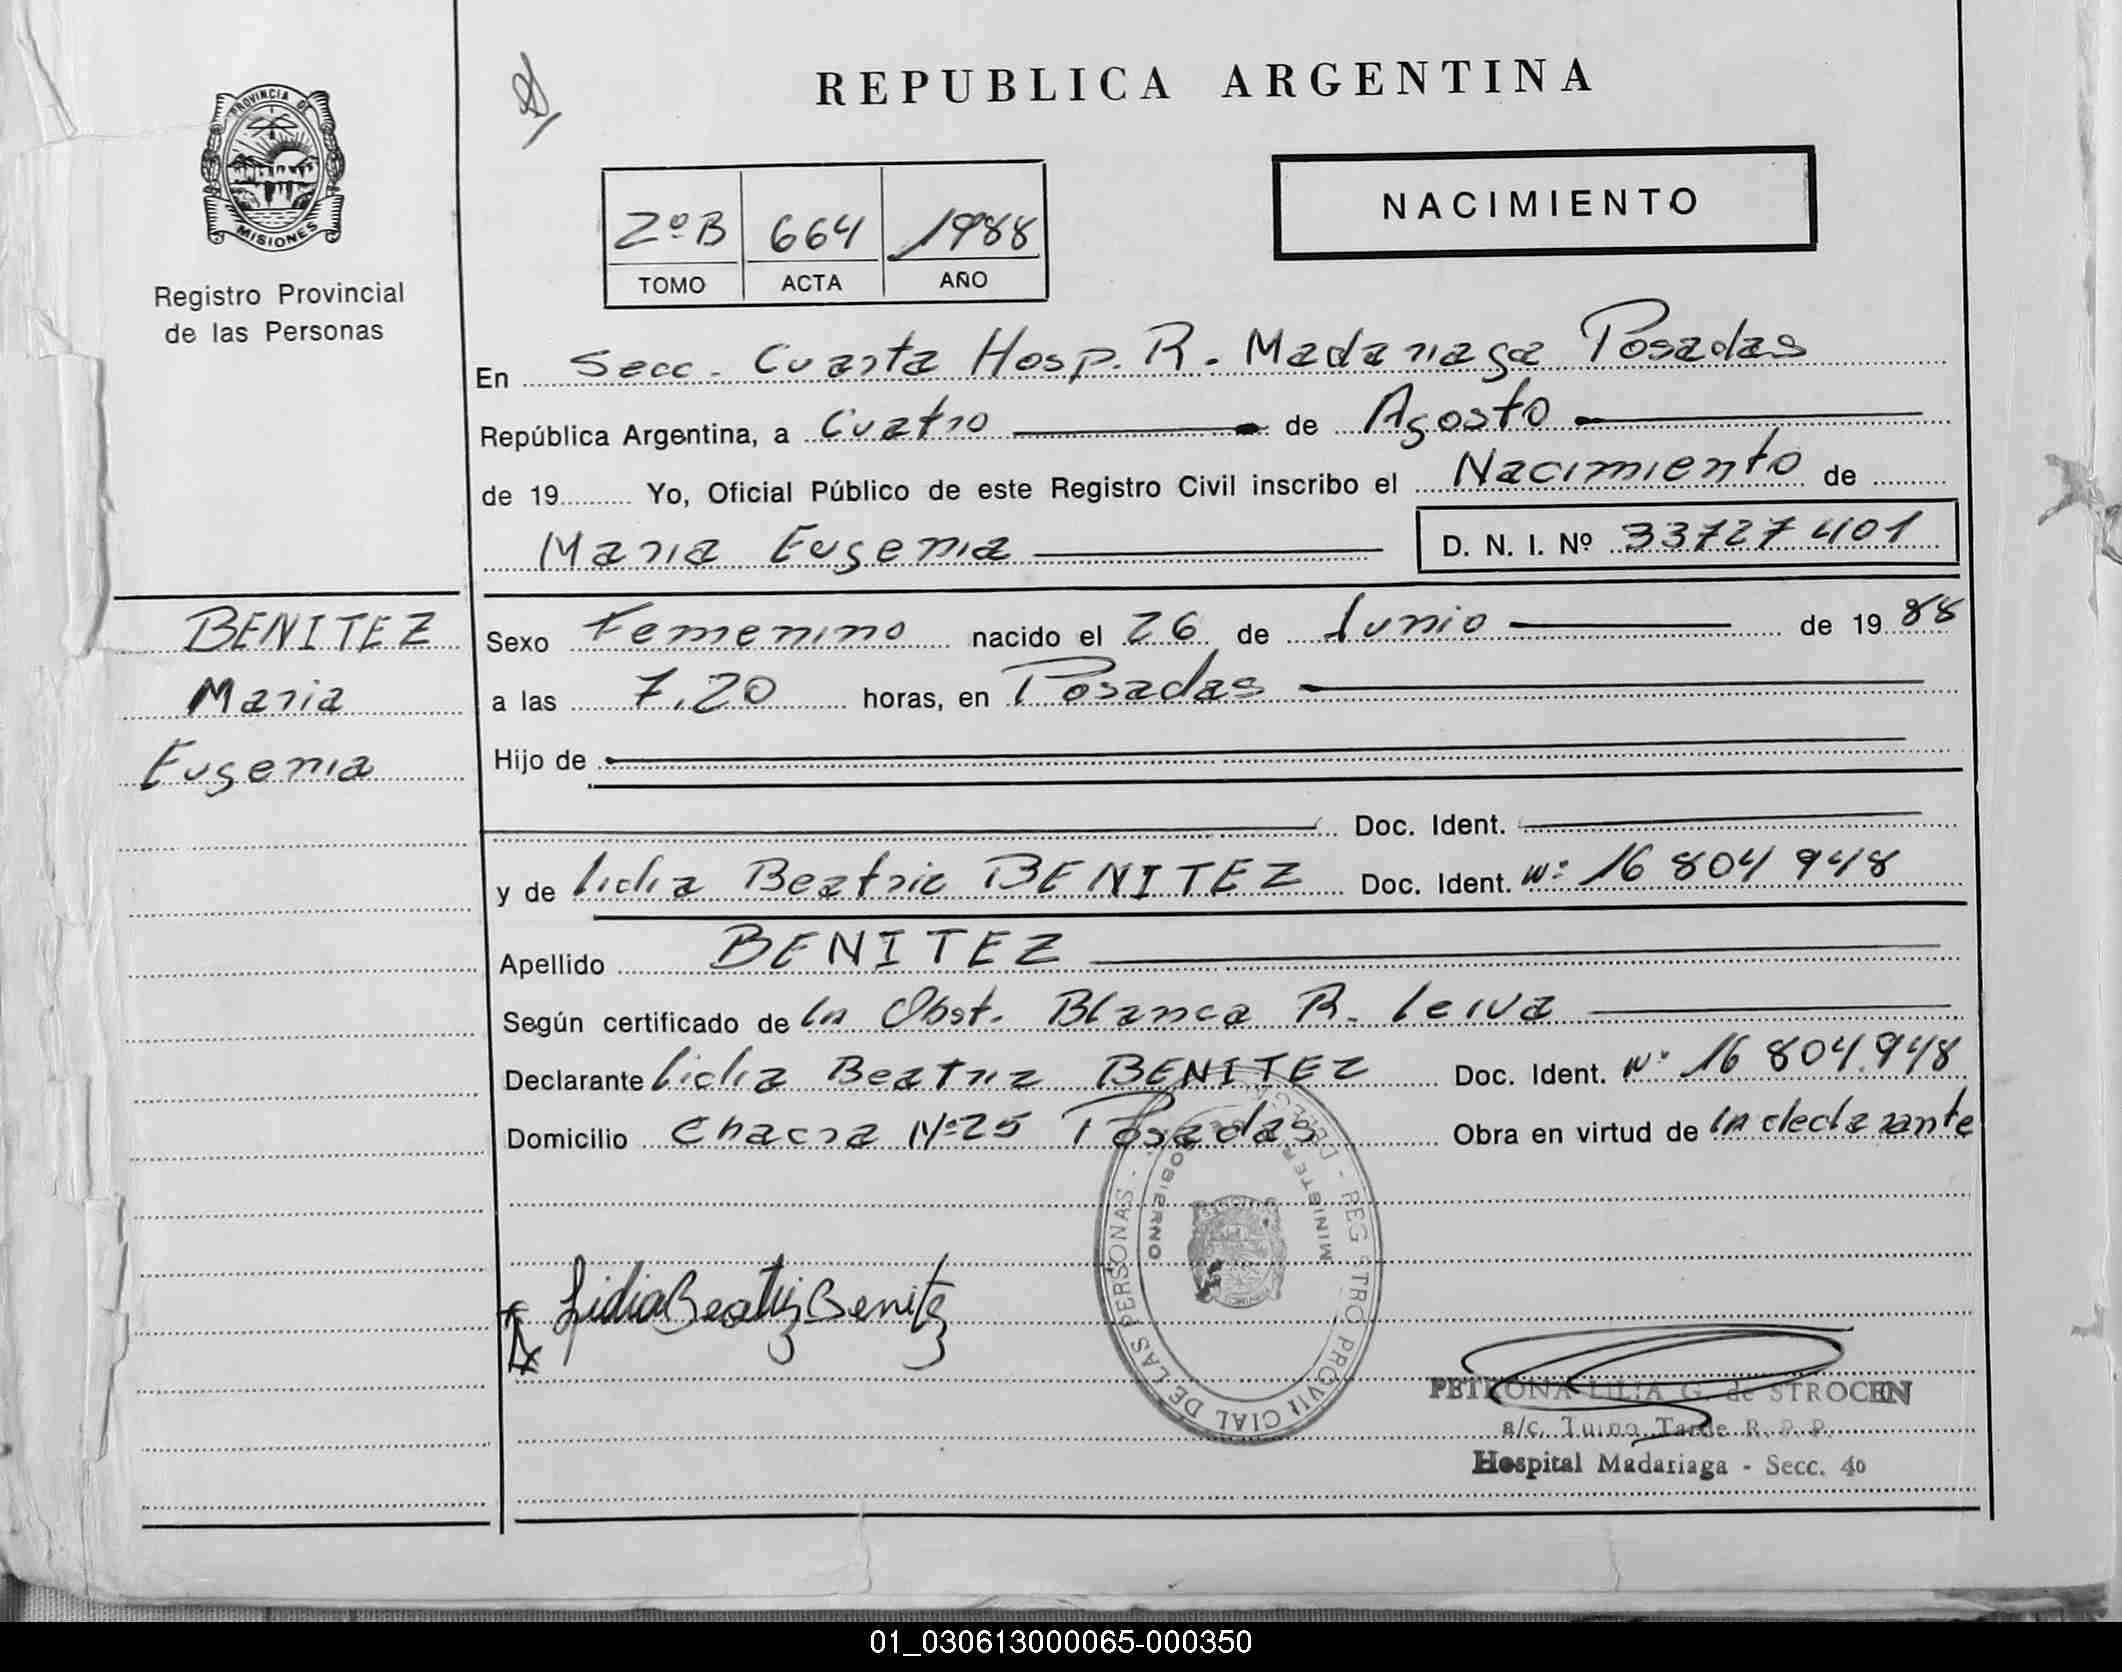 REPUBLICA ARGENTINA
PROVINCIA DE
MISIONES
Registro Provincial
de las Personas
2º B 664 1988
TOMO ACTA AÑO
NACIMIENTO
En Secc. Cuarta Hosp. R. Madariaga Posadas
República Argentina, a Cuatro de Agosto
de 19 Yo, Oficial Público de este Registro Civil inscribo el Nacimiento de
Maria Eugenia D. N. I. Nº 33727401
BENITEZ
Maria
Eugenia
Sexo Femenino nacido el 26 de Junio de 1988
a las 7.20 horas, en Posadas
Hijo de
Doc. Ident.
y de Lidia Beatriz BENITEZ Doc. Ident. Nº 16 804 948
Apellido BENITEZ
Según certificado de la Obst. Blanca R. Leiva
Declarante Lidia Beatriz BENITEZ Doc. Ident. Nº 16 804.948
Domicilio Chacra Nº 25 Posadas Obra en virtud de la declarante
REGISTRO PROVINCIAL DE LAS PERSONAS
MINISTER GOBIERNO
Lidia Beatriz Benitez
PETRONA LILIA G. de STROCEN
a/c. Turno Tarde R. P. P.
Hospital Madariaga - Secc. 4o
01_030613000065-000350